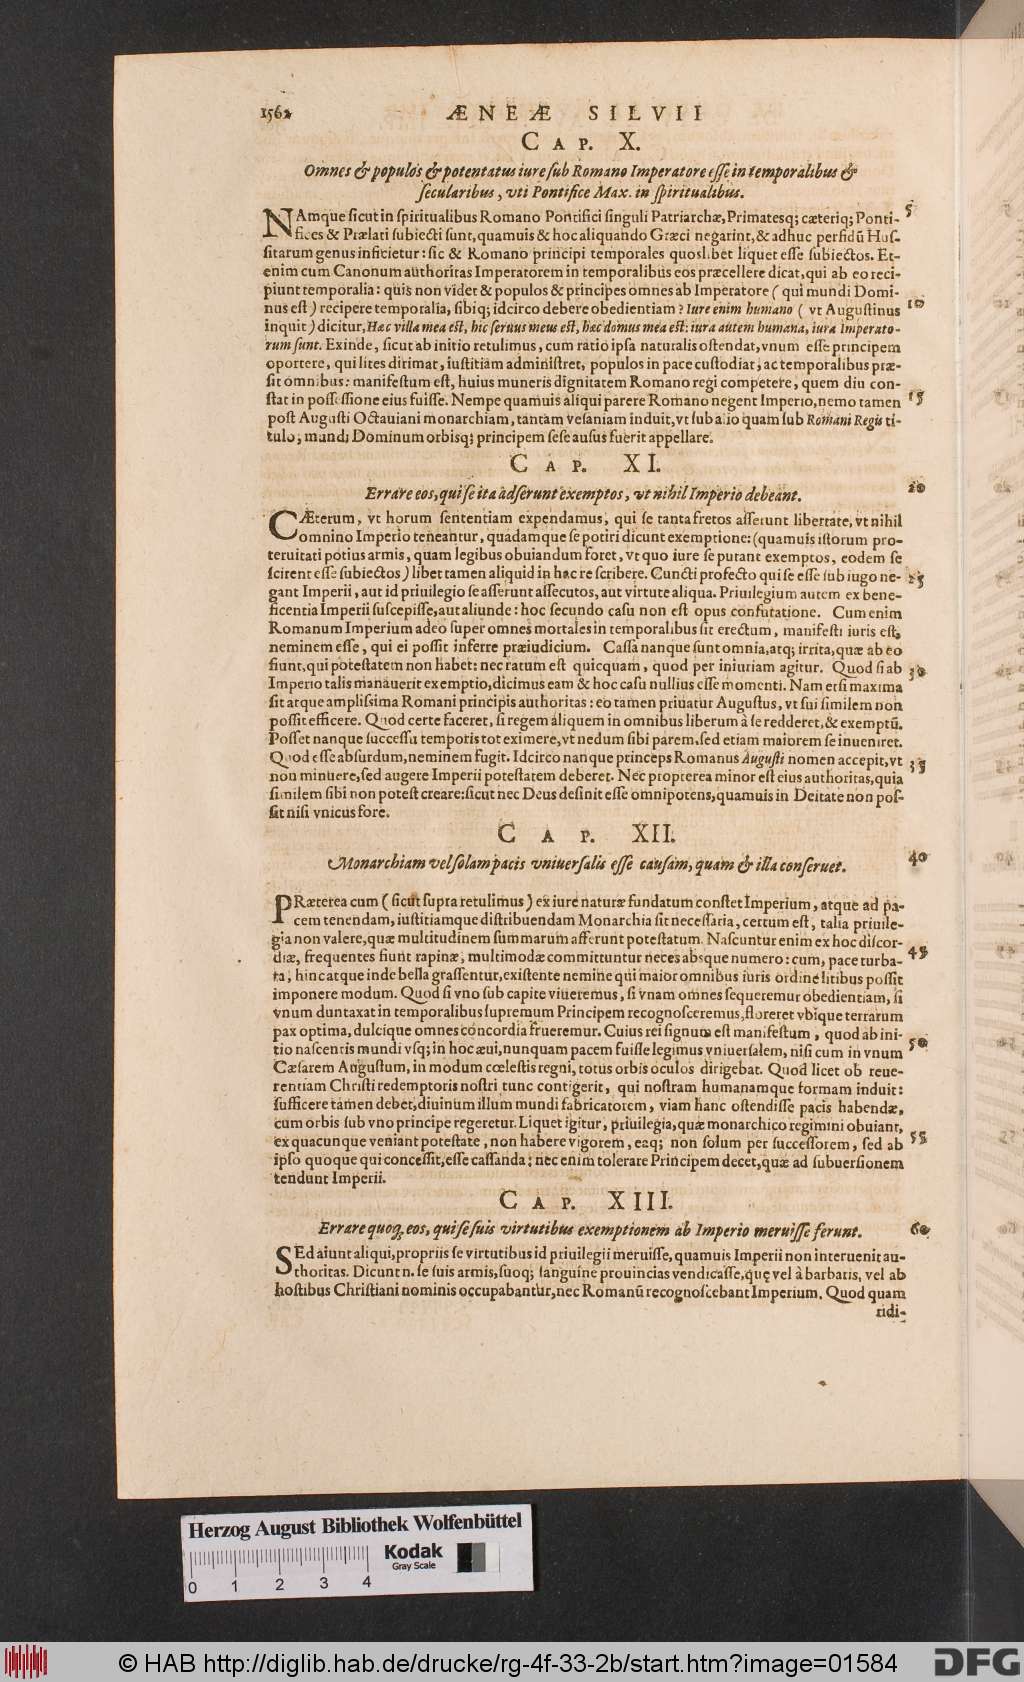 1562 ÆNEÆ SILVII
CAP. X.
Omnes & populos & potentatus iure ſub Romano Imperatore eſſe in temporalibus &
ſecularibus, vti Pontifice Max. in ſpiritualibus.
NAmque ſicut in ſpiritualibus Romano Pontifici ſinguli Patriarchæ, Primatesq; cæteriq; Ponti- 5
fices & Prælati ſubiecti ſunt, quamuis & hoc aliquando Græci negarint, & adhuc perfidū Huſ-
ſitarum genus inficietur: ſic & Romano principi temporales quoslibet liquet eſſe ſubiectos. Et-
enim cum Canonum authoritas Imperatorem in temporalibus eos præcellere dicat, qui ab eo reci-
piunt temporalia: quis non videt & populos & principes omnes ab Imperatore ( qui mundi Domi-
nus eſt ) recipere temporalia, ſibiq; idcirco debere obedientiam? Iure enim humano ( vt Auguſtinus 10
inquit ) dicitur, Hæc villa mea eſt, hic ſeruus meus eſt, hæc domus mea eſt: iura autem humana, iura Imperato-
rum ſunt. Exinde, ſicut ab initio retulimus, cum ratio ipſa naturalis oſtendat, vnum eſſe principem
oportere, qui lites dirimat, iuſtitiam adminiſtret, populos in pace cuſtodiat, ac temporalibus præ-
ſit omnibus: manifeſtum eſt, huius muneris dignitatem Romano regi competere, quem diu con-
ſtat in poſſeſſione eius fuiſſe. Nempe quamuis aliqui parere Romano negent Imperio, nemo tamen 15
poſt Auguſti Octauiani monarchiam, tantam veſaniam induit, vt ſub alio quam ſub Romani Regis ti-
tulo, mundi Dominum orbisq; principem ſeſe auſus fuerit appellare.
CAP. XI.
Errare eos, qui ſe ita adſerunt exemptos, vt nihil Imperio debeant. 20
CÆterum, vt horum ſententiam expendamus, qui ſe tanta fretos aſſerunt libertate, vt nihil
omnino Imperio teneantur, quadamque ſe potiri dicunt exemptione: (quamuis iſtorum pro-
teruitati potius armis, quam legibus obuiandum foret, vt quo iure ſe putant exemptos, eodem ſe
ſcirent eſſe ſubiectos) libet tamen aliquid in hac re ſcribere. Cuncti profecto qui ſe eſſe ſub iugo ne- 25
gant Imperii, aut id priuilegio ſe aſſerunt aſſecutos, aut virtute aliqua. Priuilegium autem ex bene-
ficentia Imperii ſuſcepiſſe, aut aliunde: hoc ſecundo caſu non eſt opus confutatione. Cum enim
Romanum Imperium adeo ſuper omnes mortales in temporalibus ſit erectum, manifeſti iuris eſt,
neminem eſſe, qui ei poſſit inferre præiudicium. Caſſa nanque ſunt omnia, atq; irrita, quæ ab eo
fiunt, qui poteſtatem non habet: nec ratum eſt quicquam, quod per iniuriam agitur. Quod ſi ab 30
Imperio talis manauerit exemptio, dicimus eam & hoc caſu nullius eſſe momenti. Nam etſi maxima
ſit atque ampliſsima Romani principis authoritas: eo tamen priuatur Auguſtus, vt ſui ſimilem non
poſſit efficere. Quod certe faceret, ſi regem aliquem in omnibus liberum à ſe redderet, & exemptū.
Poſſet nanque ſucceſſu temporis tot eximere, vt nedum ſibi parem, ſed etiam maiorem ſe inueniret.
Quod eſſe abſurdum, neminem fugit. Idcirco nanque princeps Romanus Auguſti nomen accepit, vt 35
non minuere, ſed augere Imperii poteſtatem deberet. Nec propterea minor eſt eius authoritas, quia
ſimilem ſibi non poteſt creare: ſicut nec Deus deſinit eſſe omnipotens, quamuis in Deitate non poſ-
ſit niſi vnicus fore.
CAP. XII.
Monarchiam vel ſolam pacis vniuerſalis eſſe cauſam, quam & illa conſeruet. 40
PRæterea cum ( ſicut ſupra retulimus ) ex iure naturæ fundatum conſtet Imperium, atque ad pa-
cem tenendam, iuſtitiamque diſtribuendam Monarchia ſit neceſſaria, certum eſt, talia priuile-
gia non valere, quæ multitudinem ſummarum afferunt poteſtatum. Naſcuntur enim ex hoc diſcor-
diæ, frequentes fiunt rapinæ, multimodæ committuntur neces absque numero: cum, pace turba- 45
ta, hinc atque inde bella graſſentur, exiſtente nemine qui maior omnibus iuris ordine litibus poſſit
imponere modum. Quod ſi vno ſub capite viueremus, ſi vnam omnes ſequeremur obedientiam, ſi
vnum duntaxat in temporalibus ſupremum Principem recognoſceremus, floreret vbique terrarum
pax optima, dulcique omnes concordia frueremur. Cuius rei ſignum eſt manifeſtum, quod ab ini-
tio naſcentis mundi vſq; in hoc æui, nunquam pacem fuiſſe legimus vniuerſalem, niſi cum in vnum 50
Cæſarem Auguſtum, in modum cœleſtis regni, totus orbis oculos dirigebat. Quod licet ob reue-
rentiam Chriſti redemptoris noſtri tunc contigerit, qui noſtram humanamque formam induit:
ſufficere tamen debet, diuinum illum mundi fabricatorem, viam hanc oſtendiſſe pacis habendæ,
cum orbis ſub vno principe regeretur. Liquet igitur, priuilegia, quæ monarchico regimini obuiant,
ex quacunque veniant poteſtate, non habere vigorem, eaq; non ſolum per ſucceſſorem, ſed ab 55
ipſo quoque qui conceſſit, eſſe caſſanda: nec enim tolerare Principem decet, quæ ad ſubuerſionem
tendunt Imperii.
CAP. XIII.
Errare quoq, eos, qui ſe ſuis virtutibus exemptionem ab Imperio meruiſſe ferunt. 60
SEd aiunt aliqui, propriis ſe virtutibus id priuilegii meruiſſe, quamuis Imperii non interuenit au-
thoritas. Dicunt n. ſe ſuis armis, ſuoq; ſanguine prouincias vendicaſſe, quę vel à barbaris, vel ab
hoſtibus Chriſtiani nominis occupabantur, nec Romanū recognoſcebant Imperium. Quod quam
ridi-
Herzog August Bibliothek Wolfenbüttel
Kodak
Gray Scale
0 1 2 3 4
© HAB http://diglib.hab.de/drucke/rg-4f-33-2b/start.htm?image=01584
DFG